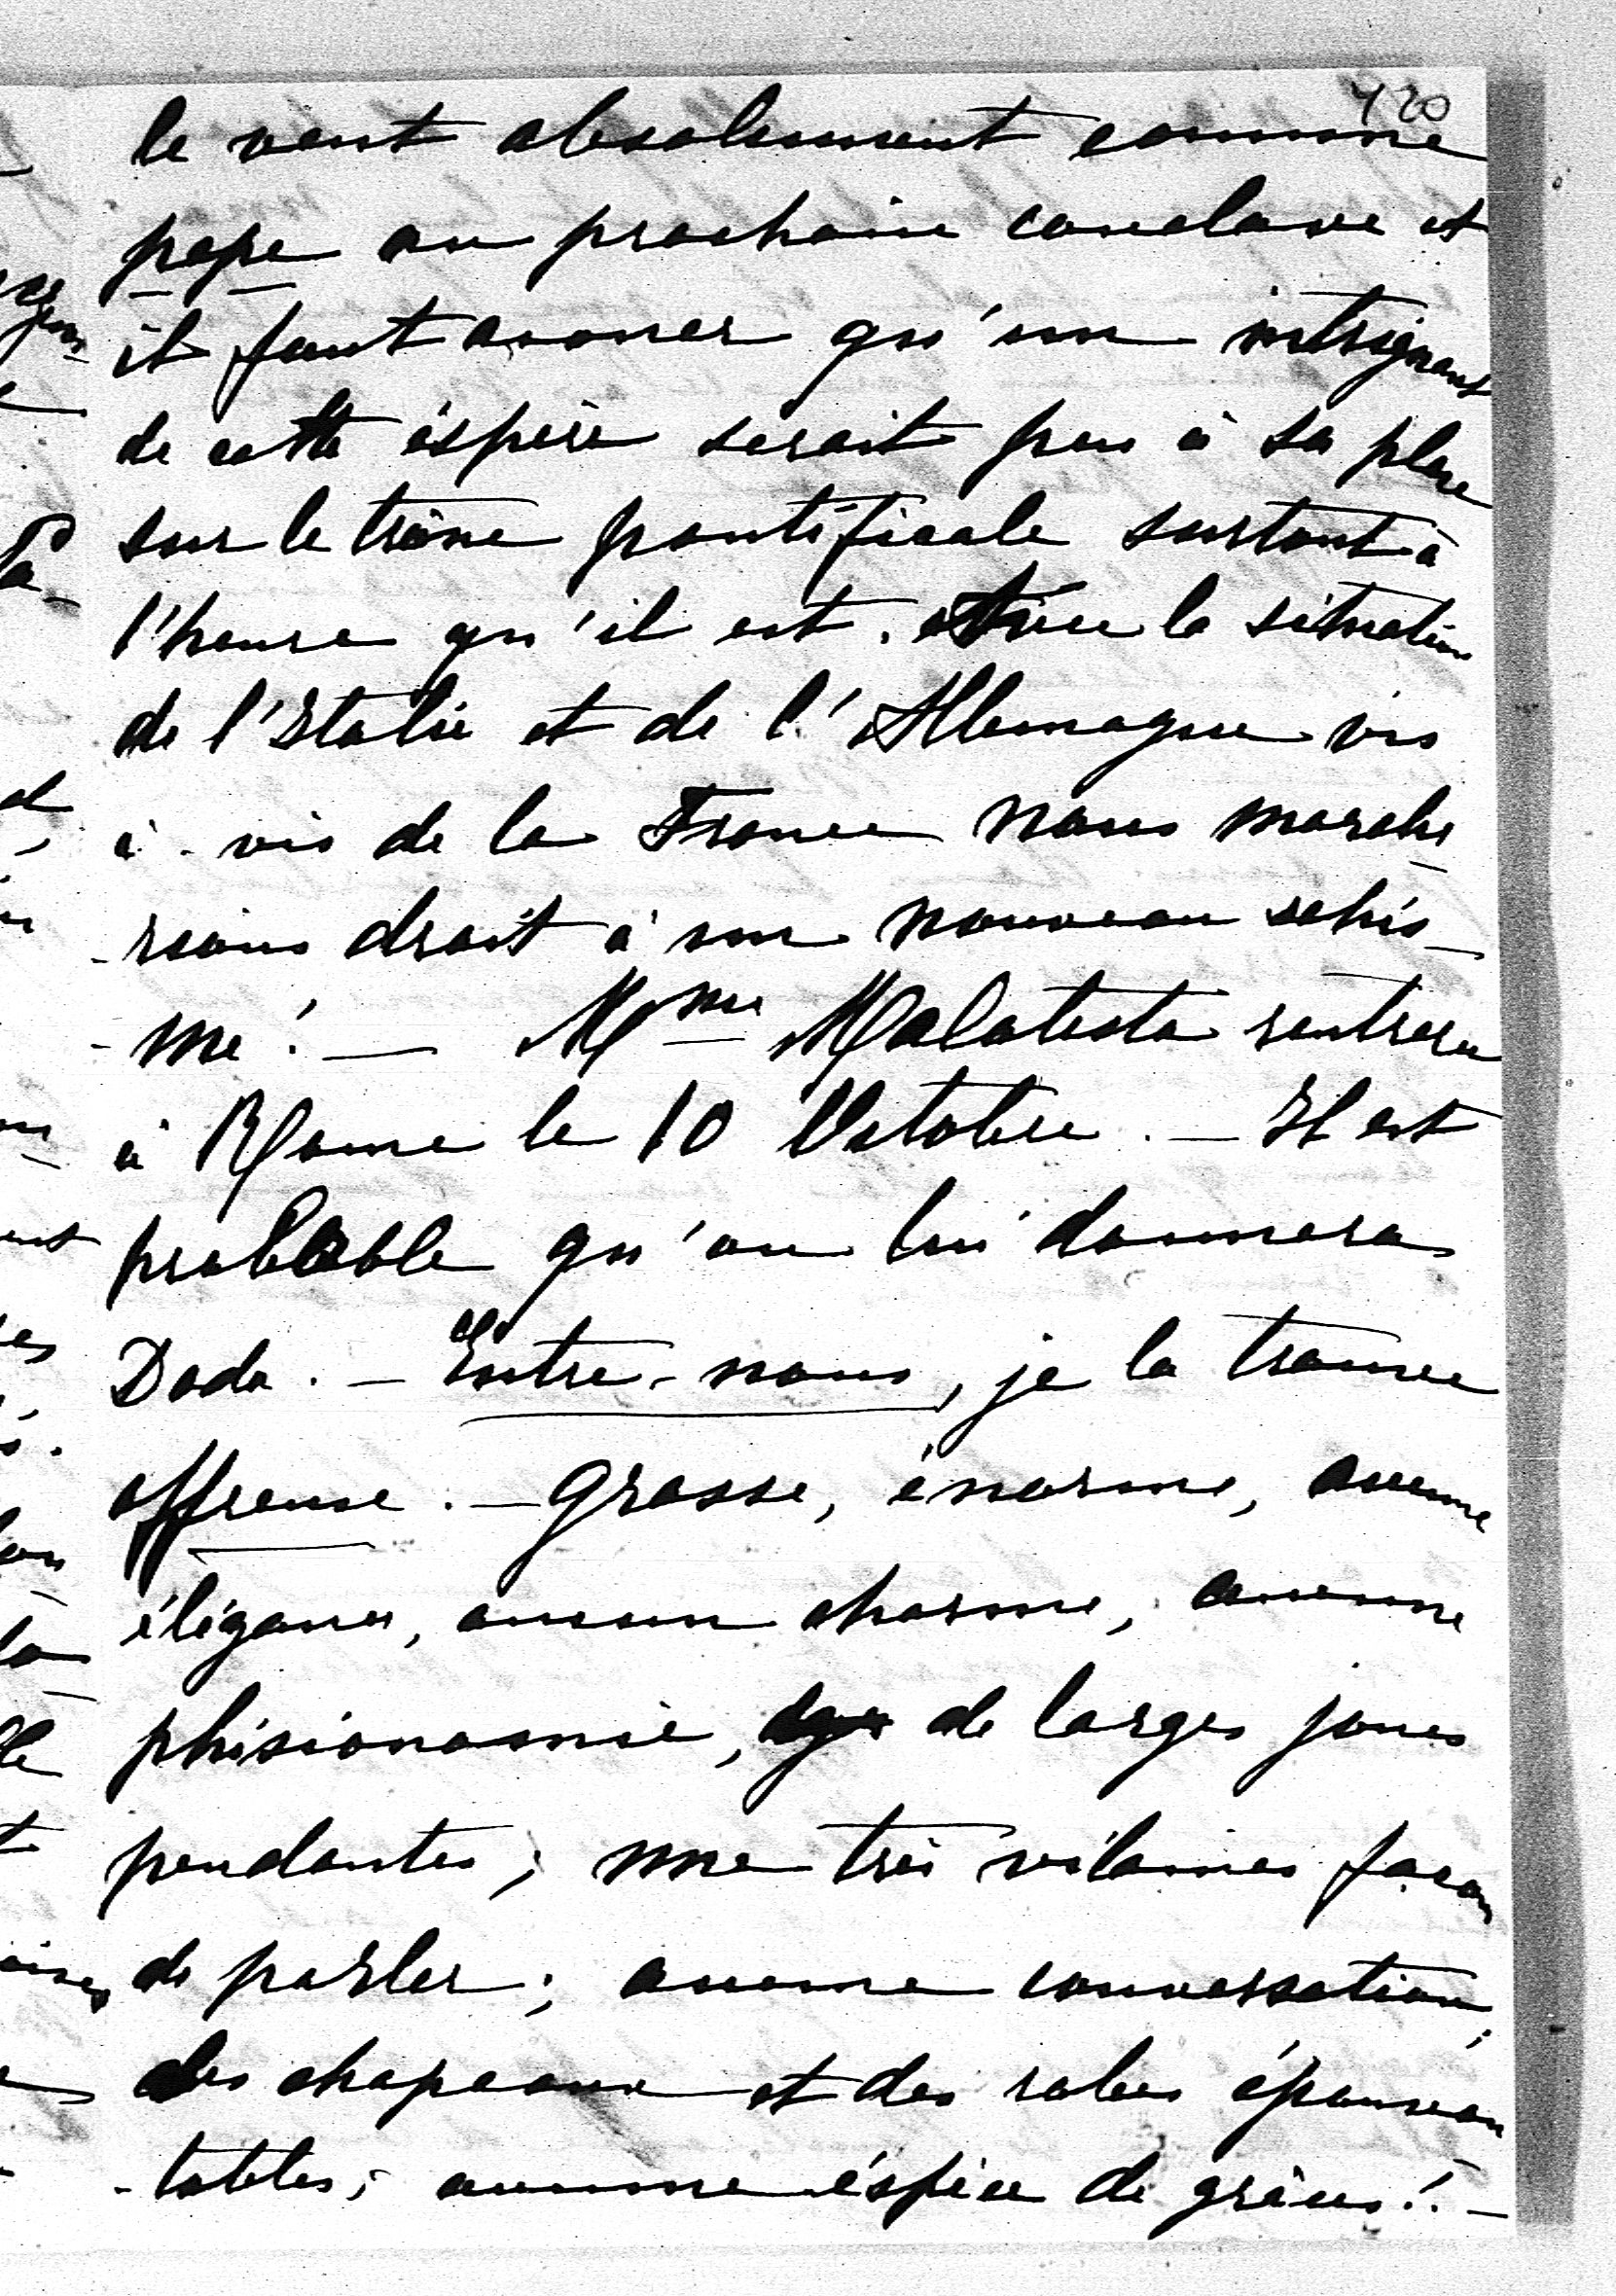 420
le veut absolument comme
pape au prochain conclave et
il faut avouer qu'un intrigant
de cette éspèce serait peu à sa place
sur le trône pontificale surtout à
l'heure qu'il est. Avec la situation
de l'Italie et de l'Allemagne vis
à-vis de la France nous marche
-rions droit à un nouveau schis-
-me! — Mme Malatesta rentrera
à Rome le 10 Octobre. — Il est
probable qu'on lui donnera
Doda. — Entre-nous, je la trouve
affreuse. — Grasse, énorme, aucune
élégance, aucun charme, aucune
phisionomie, de larges joues
pendantes; une très vilaines façon
de parler; aucune conversation;
des chapeaux et des robes épouvan
-tables; aucune éspèce de grâces!. —